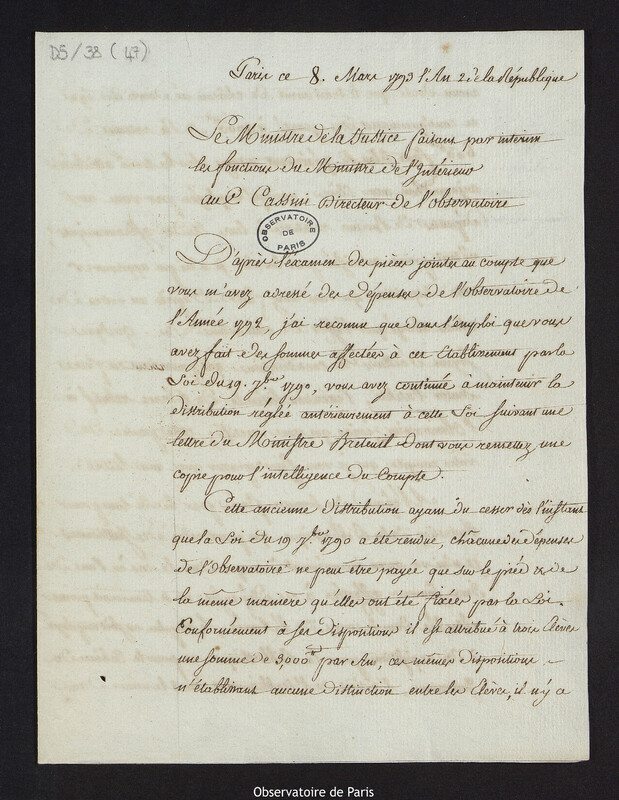 D5/38 (47)
Paris ce 8. Mars 1793 l'An 2 de la République
Le Ministre de la Justice faisant par intérim
les fonctions du Ministre de l'Intérieur
au C. Cassini Directeur de l'Observatoire
OBSERVATOIRE
DE
PARIS
D'après l'éxamen des pièces jointes au compte que
vous m'avez adressé des dépenses de l'Observatoire de
l'Année 1792, j'ai reconnu que dans l'emploi que vous
avez fait des sommes affectées à cet Etablissement par la
Loi du 19. 7bre 1790, vous avez continué à maintenir la
distribution réglée antérieurement à cette Loi suivant une
lettre du Ministre Breteuil dont vous remettez une
copie pour l'intelligence du Compte.
Cette ancienne distribution ayant du cesser dès l'instant
que la Loi du 19 7bre 1790 a été rendue, chacune des dépenses
de l'Observatoire ne peut être payée que sur le pied & de
la même manière qu'elles ont été fixées par la Loi.
Conformément à ses dispositions il est attribué à trois Elèves
une somme de 3,000 par An, ces mêmes dispositions
n'établissant aucune distinction entre les Elèves, il n'y a
Observatoire de Paris